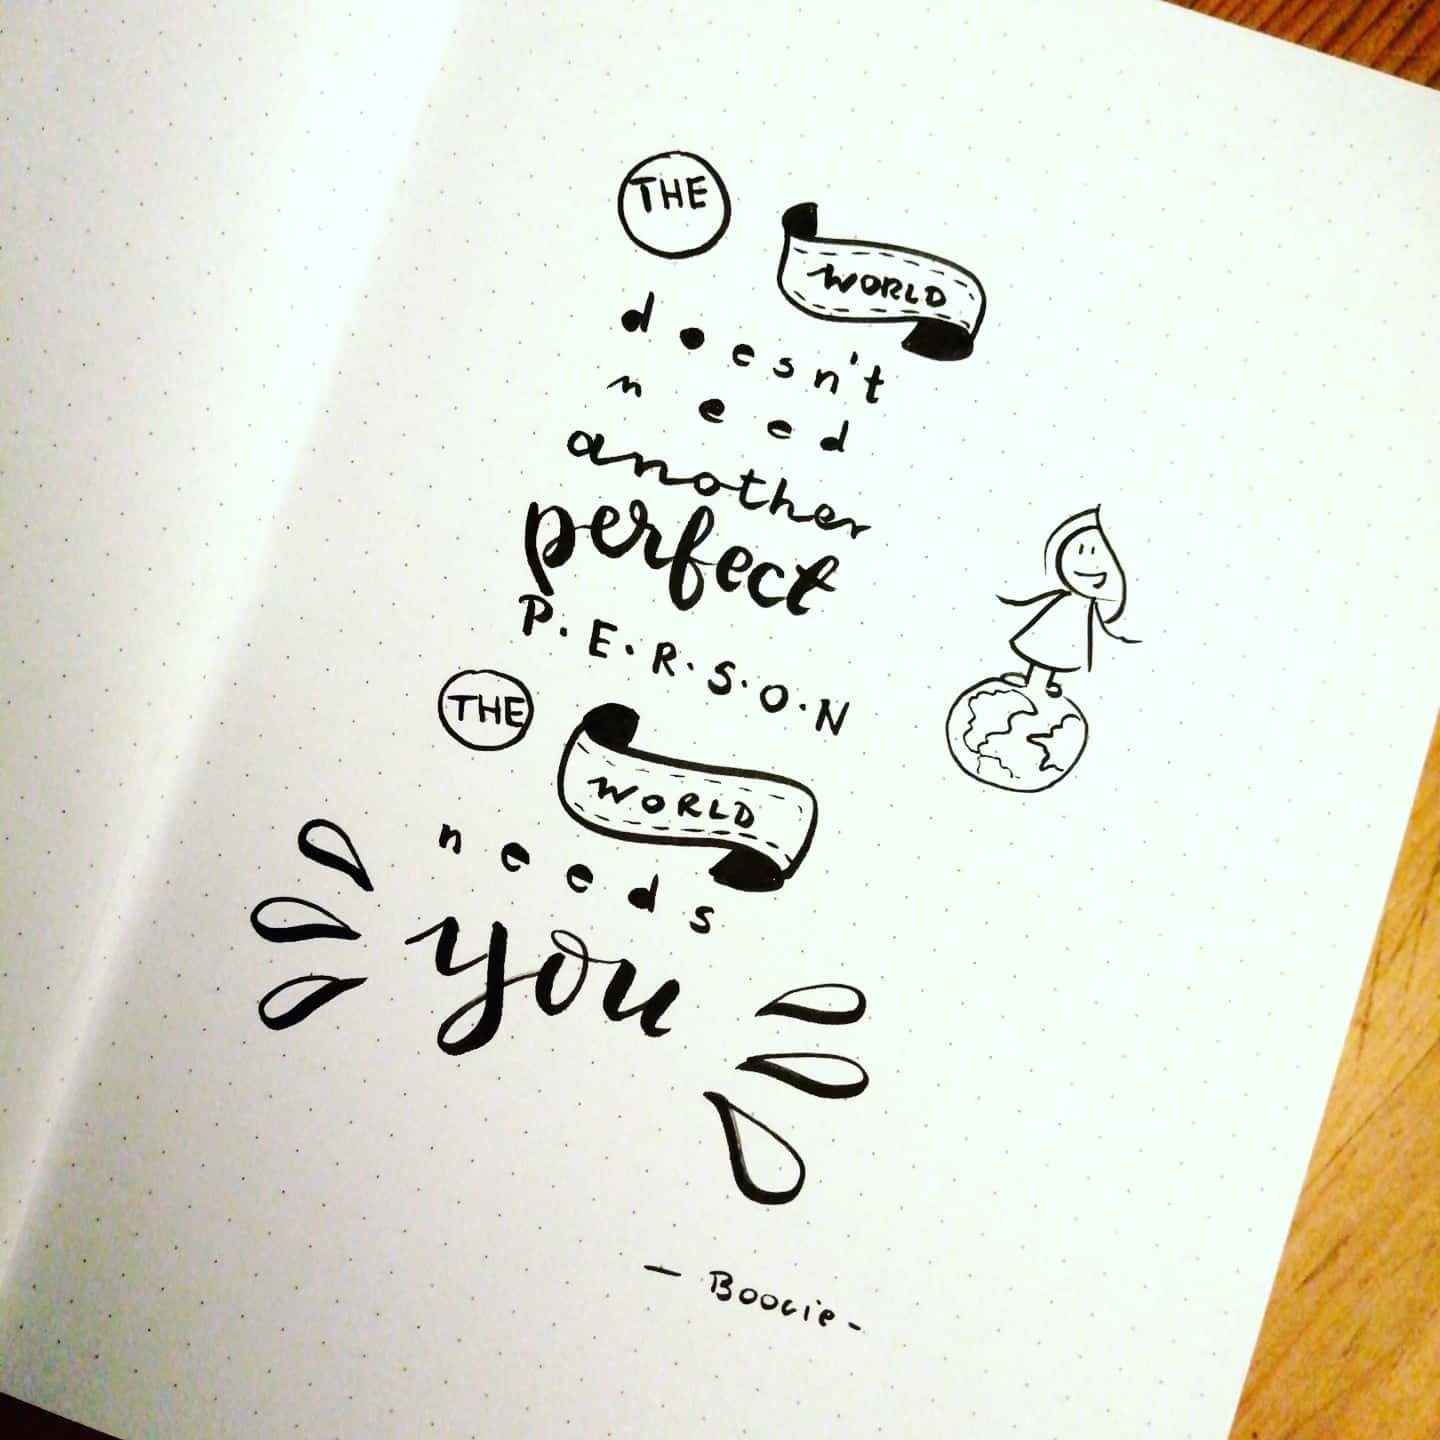 THE WORLD
doesn't
need
another
perfect
P.E.R.S.O.N
THE WORLD
needs
you
— BOOGIE -